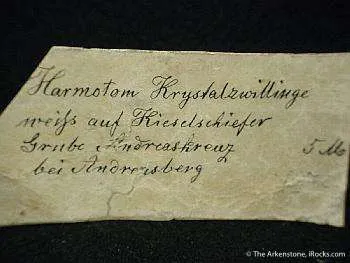 Harmotom Krystalzwillinge
weiss auf Kieselschiefer
Grube Andreaskreuz 5 M
bei Andreasberg
© The Arkenstone, iRocks.com